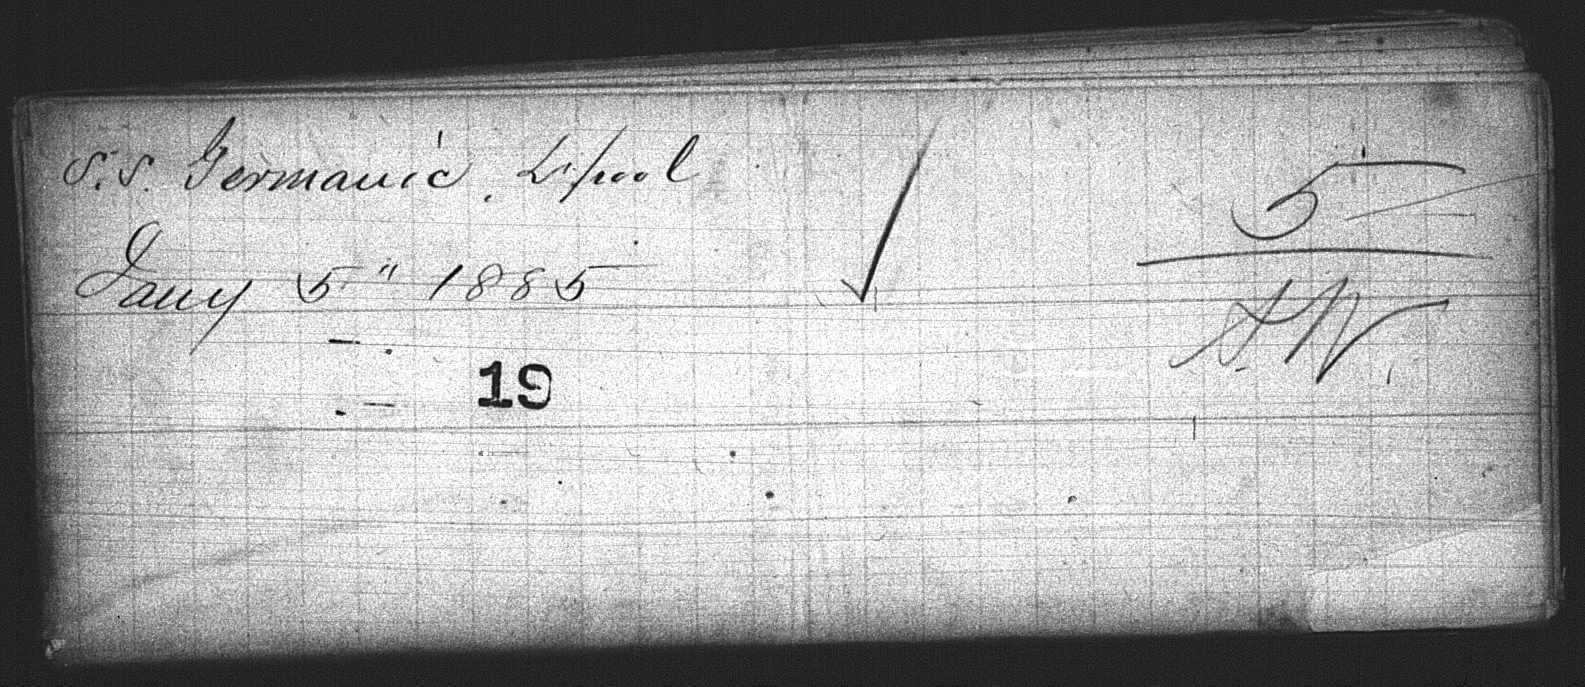 S.S. Germanic. L'pool
Jany 5" 1885
19
5
A.W.